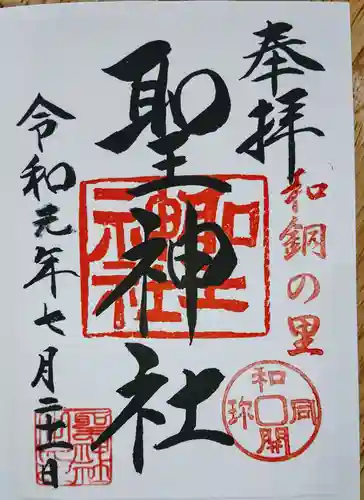 奉拝
和銅の里
聖神社
聖神社
和同開珎
令和元年七月二十一日
聖神社